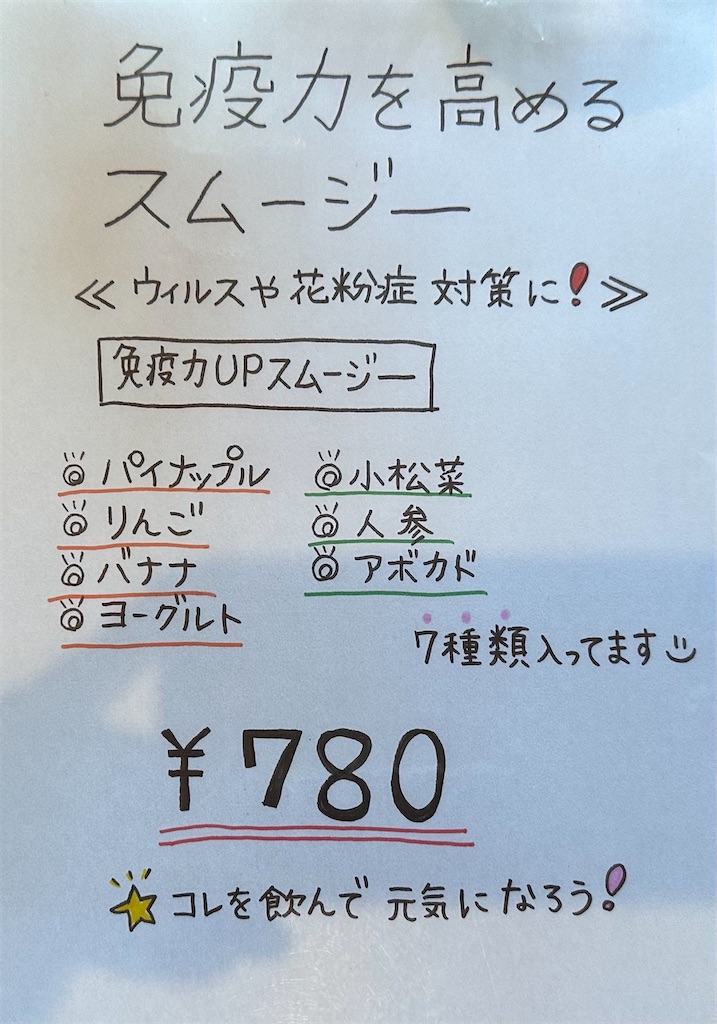 免疫力を高める
スムージー
≪ ウィルスや花粉症 対策に! ≫
免疫力UPスムージー
◎ パイナップル
◎ りんご
◎ バナナ
◎ ヨーグルト
◎ 小松菜
◎ 人参
◎ アボカド
7種類入ってます
¥780
コレを飲んで 元気になろう!